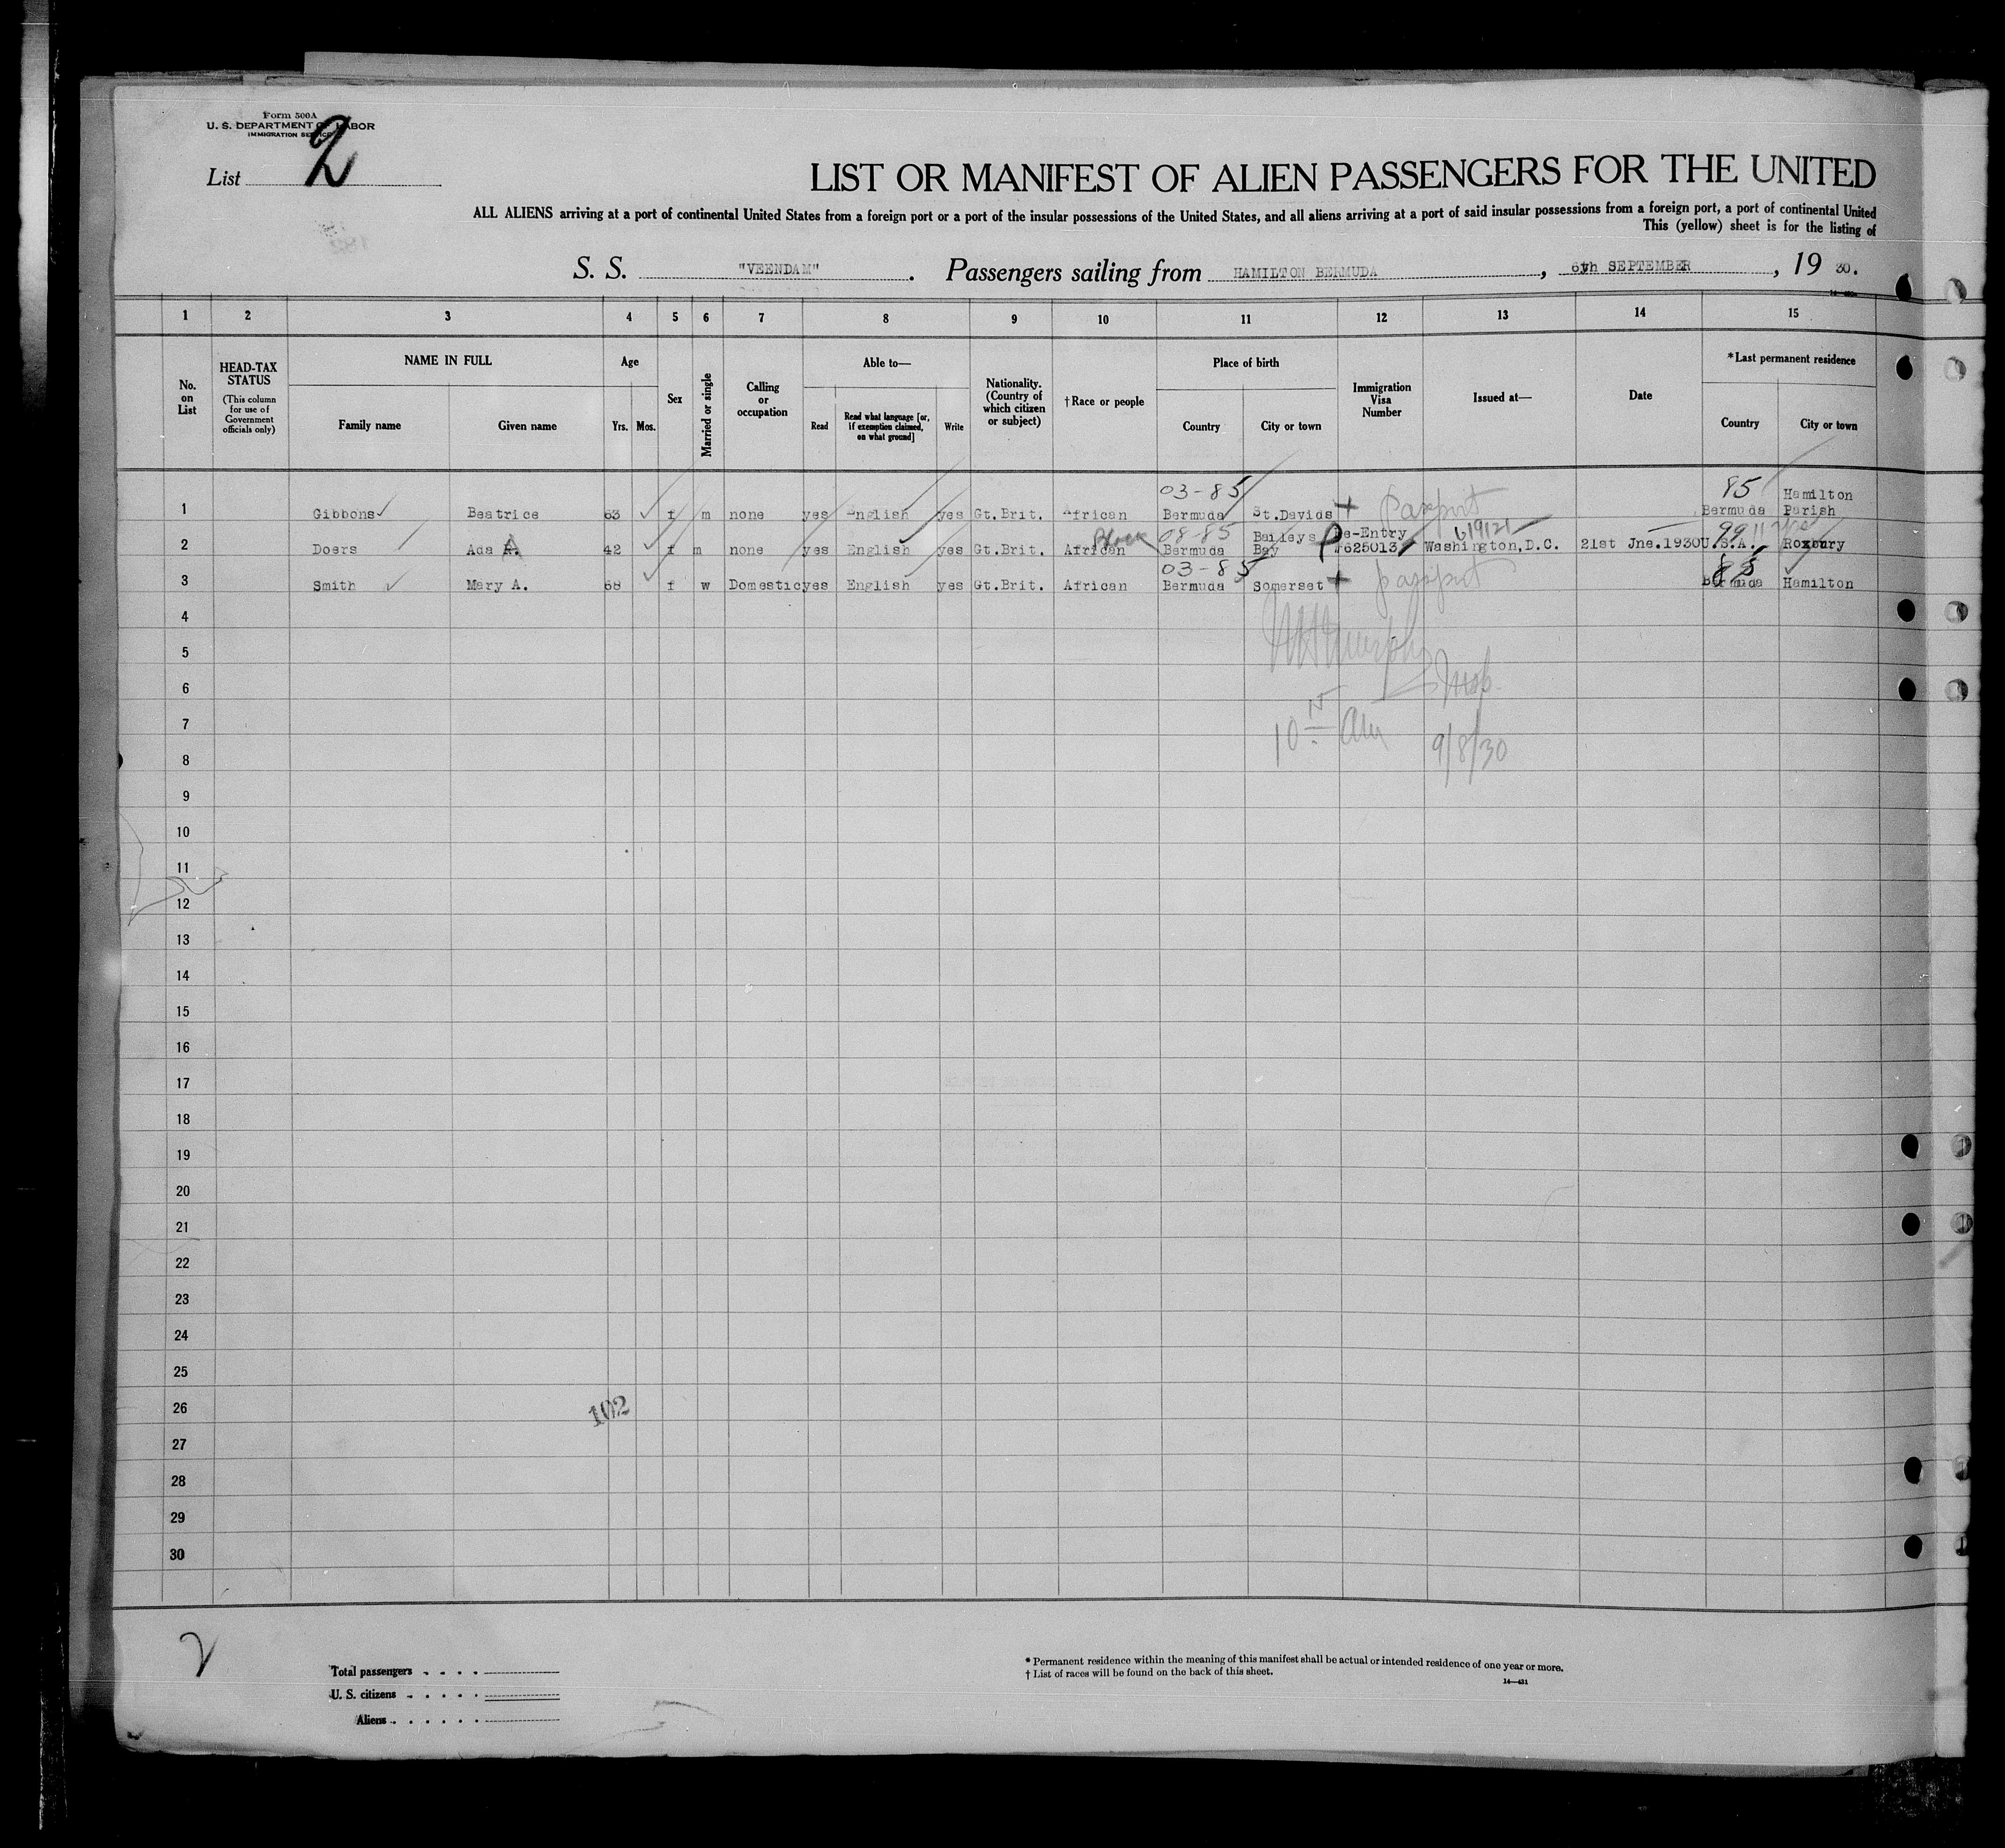 Form 500A
U. S. DEPARTMENT OF LABOR
IMMIGRATION SERVICE
List 2
LIST OR MANIFEST OF ALIEN PASSENGERS FOR THE UNITED
ALL ALIENS arriving at a port of continental United States from a foreign port or a port of the insular possessions of the United States, and all aliens arriving at a port of said insular possessions from a foreign port, a port of continental United
This (yellow) sheet is for the listing of
S. S. "VEENDAM". Passengers sailing from HAMILTON BERMUDA, 6th SEPTEMBER, 19 30.
1 2 3 4 5 6 7 8 9 10 11 12 13 14 15
No. on List
HEAD-TAX STATUS (This column for use of Government officials only)
NAME IN FULL
Family name Given name
Age
Yrs. Mos.
Sex
Married or single
Calling or occupation
Able to—
Read Read what language [or, if exemption claimed, on what ground] Write
Nationality. (Country of which citizen or subject)
†Race or people
Place of birth
Country City or town
Immigration Visa Number
Issued at—
Date
*Last permanent residence
Country City or town
03-85 passport 85
1 Gibbons Beatrice 63 f m none yes English yes Gt.Brit. African Bermuda St.Davids Bermuda Hamilton Parish
Black 08-85 6/9/21 99
2 Doers Ada A. 42 f m none yes English yes Gt.Brit. African Bermuda Baileys Bay Re-Entry #625013 Washington,D.C. 21st Jne.1930 U.S.A. Roxbury
03-85 passport 85
3 Smith Mary A. 68 f w Domestic yes English yes Gt.Brit. African Bermuda Somerset Bermuda Hamilton
4
5
6
7
8
9
10
11
12
13
14
15
16
17
18
19
20
21
22
23
24
25
26
27
28
29
30
Murphy
Insp.
10 am 9/8/30
102
2
Total passengers
U. S. citizens
Aliens
* Permanent residence within the meaning of this manifest shall be actual or intended residence of one year or more.
† List of races will be found on the back of this sheet.
14—431